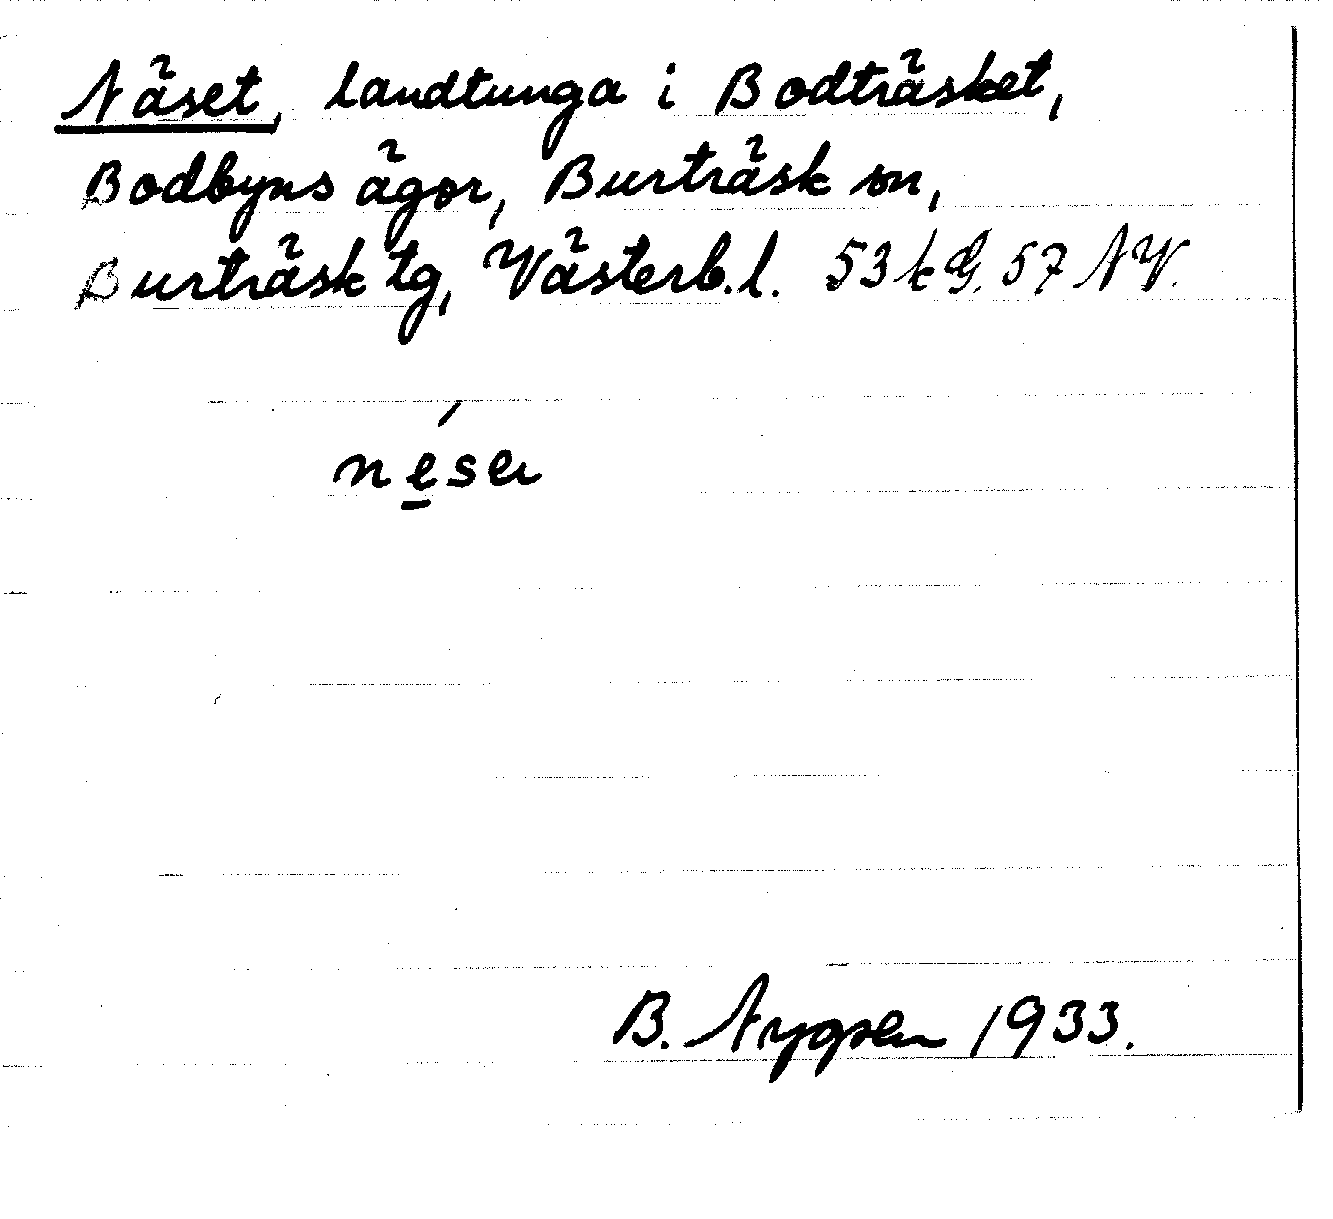 Näset, landtunga i Bodträsket,
Bodbyns ägor, Burträsk sn,
Burträsk tg, Västerb. l. 53 k G. 57 NV.
né̱seɩ
B. Nygren 1933.